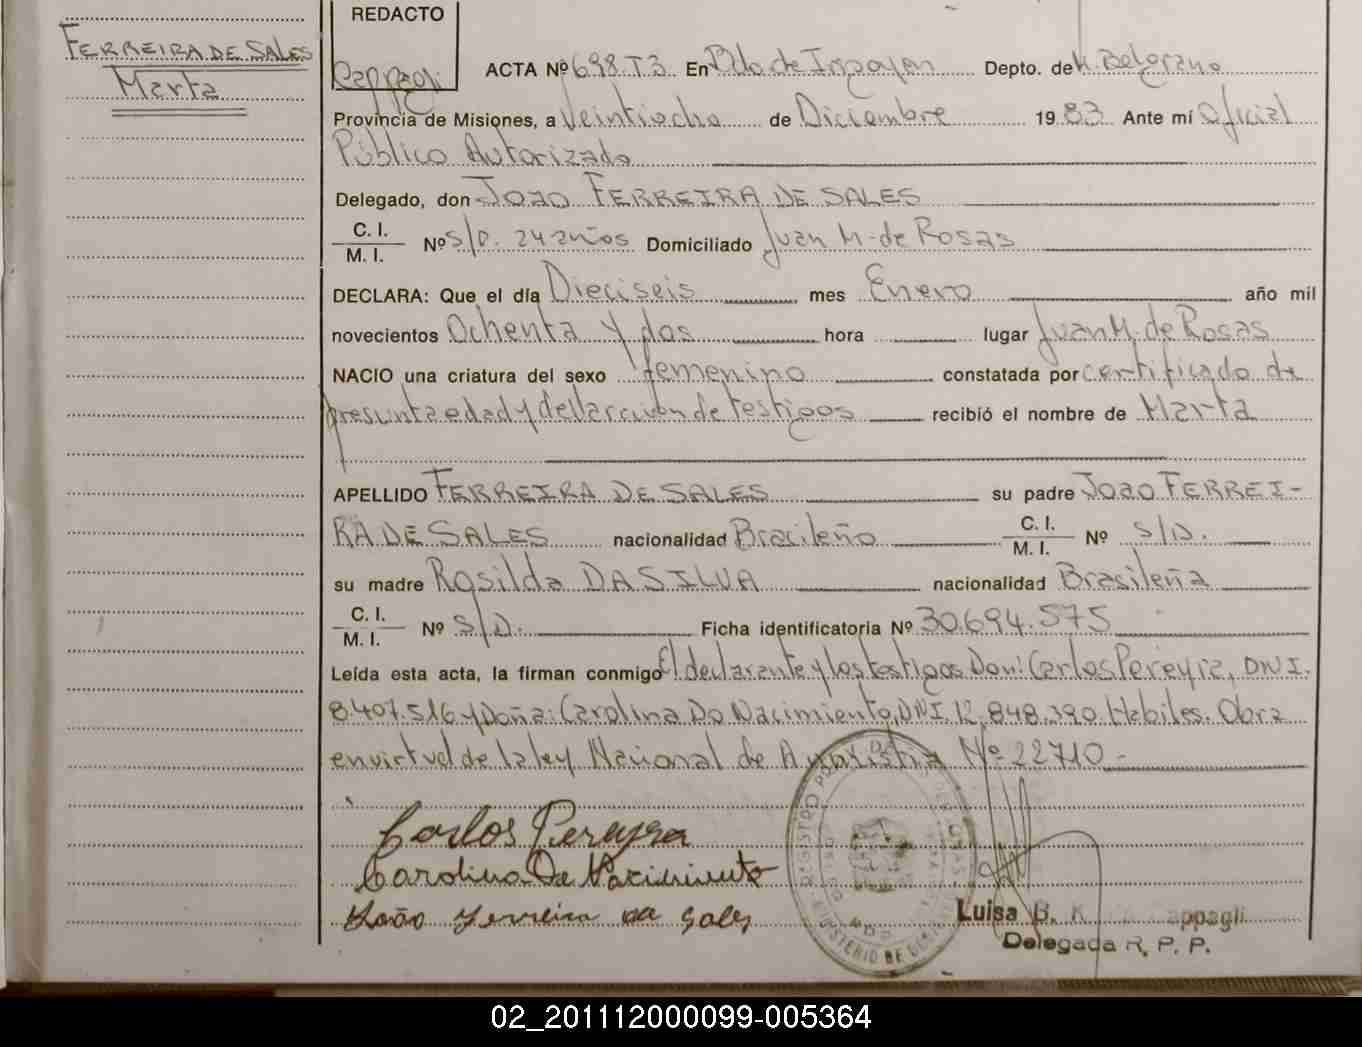 REDACTO
FERREIRA DE SALES
Marta
Cappagli
ACTA Nº 698.T3. En Pdo de Irigoyen Depto. de M. Belgrano
Provincia de Misiones, a Veintiocho de Diciembre 1983 Ante mí Oficial
Público Autorizado
Delegado, don JOAO FERREIRA DE SALES
C. I.
M. I. Nº S/D. 24 años Domiciliado Juan M. de Rosas
DECLARA: Que el día Dieciseis mes Enero año mil
novecientos Ochenta y dos hora lugar Juan M. de Rosas
NACIO una criatura del sexo femenino constatada por certificado de
presunta edad y declaración de testigos recibió el nombre de Marta
APELLIDO FERREIRA DE SALES su padre JOAO FERREI-
RA DE SALES nacionalidad Brasileño C. I. M. I. Nº S/D.
su madre Rosilda DA SILVA nacionalidad Brasileña
C. I.
M. I. Nº S/D. Ficha identificatoria Nº 30.694.575
Leída esta acta, la firman conmigo El declarante y los testigos Don: Carlos Pereyra, DNI.
8.407.516 y Doña: Carolina Do Nacimiento, DNI. 12.848.390. Habiles. Obra
en virtud de la ley Nacional de Amnistia Nº 22710-
Carlos Pereyra
Carolina Da Nacimiento
João Ferreira da Sales
Luisa B. Cappagli
Delegada R. P. P.
02_201112000099-005364